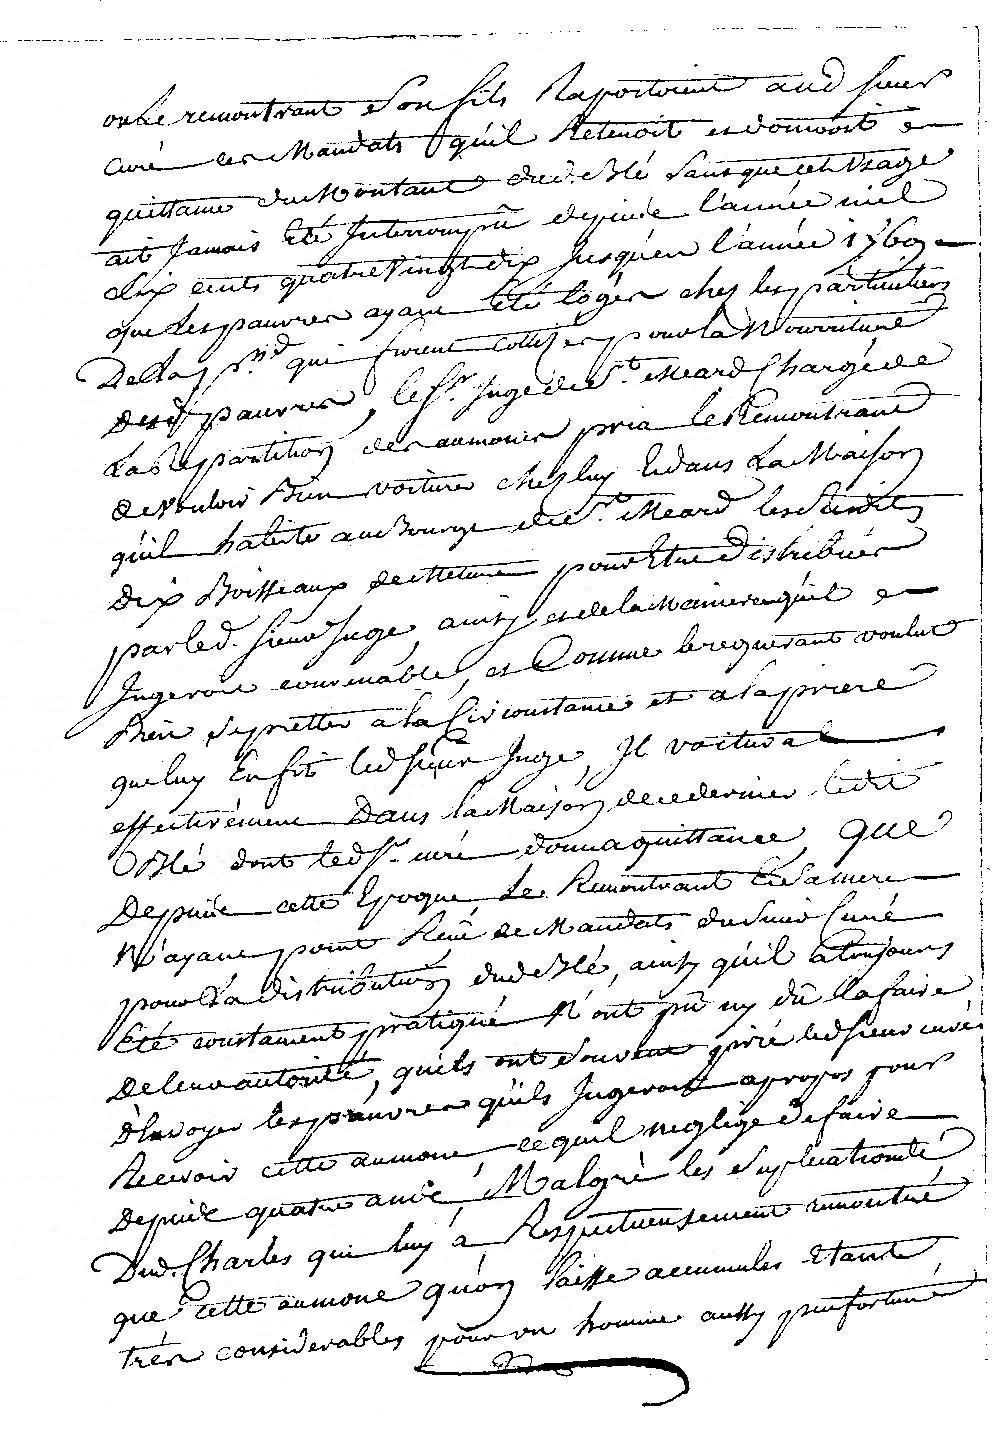 ou le remontrant et son fils Raportoient aud sieur
curé les Mandats qu'il Retenoit et donnoit en
quittance du Montant dud. Blé sans que cet Usage
ait Jamais Eté Interrompû depuis l'année mil
six cents quatre Vingt dix jusqu'en l'année 1769
que Les pauvres ayant Eté logés chez les particuliers
De lad. p.sse qui furent cottizés pour la Nourriture
desd pauvres, le Sr. Juge de St. Meard Chargé de
La Repartition des aumones pria le Remontrant
de Vouloir Bien voiturer chez luy Et dans La Maison
qu'il habite au Bourg de St. Meard lesd
Dix Boisseaux de Meture pour Etre Distribués
par led. sieur Juge, ainsy et de la Maniere qu'il en
Jugeroit convenable, et Comme le requerant voulut
Bien se pretter a la Circonstance et a la priere
que luy En fit led sieur Juge, Il voitura
effectivement Dans la Maison de ce dernier ledit
Blé dont led Sr. curé donna quittance, Que
Depuis cette Epoque Le Remontrant Et sa mere
N'ayant point Reçu de Mandats du Sieur Curé
pour La distribution dud Blé, ainsy qu'il a toujours
Eté constament pratiqué N'ont pû ny dû la faire
De leur autorité, qu'ils ont souvent prié led sieur curé
d'Envoyer les pauvres qu'ils Jugeroit apropos pour
Recevoir cette aumone, ce qu'il neglige de faire
Depuis quatre ans, Malgré les suplications
Dud. Charles qui luy a Respectueusement remontré
que cette aumone qu'on laisse accumuler Etant
trés considerables pour un homme aussy peu fortuné